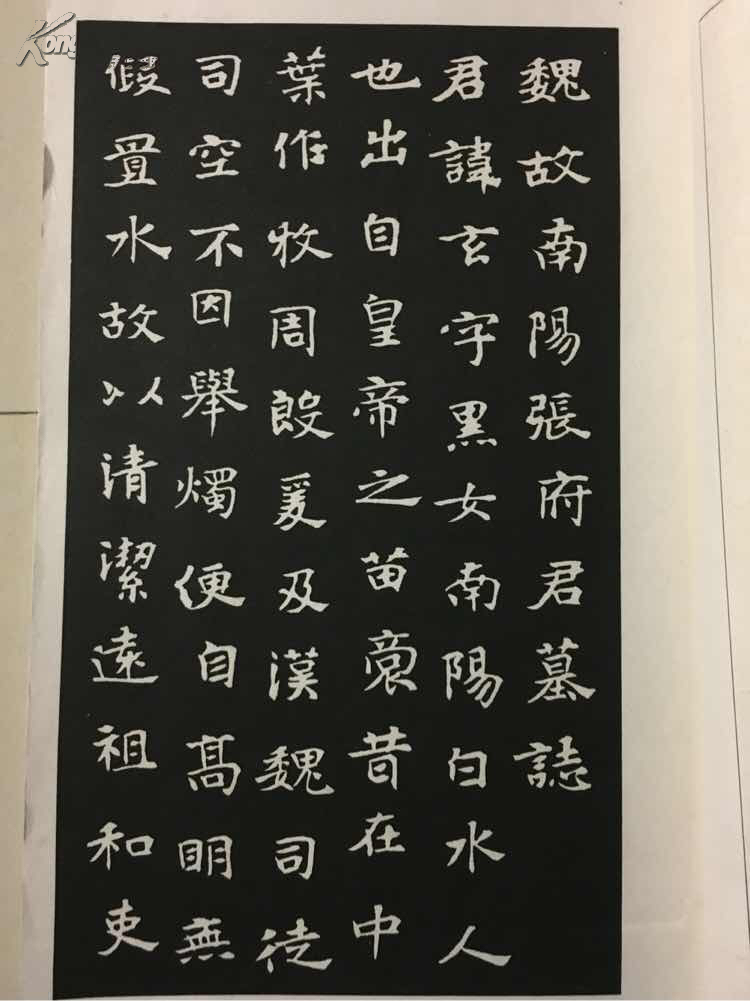 魏故南陽張府君墓誌
君諱玄字黑女南陽白水人
也出自皇帝之苗裔昔在中
葉作牧周殷爰及漢魏司徒
司空不因舉燭便自高明無
假置水故以清潔遠祖和吏
Kong